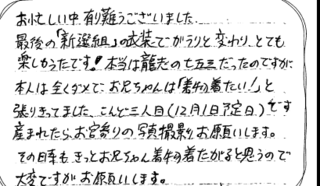 お忙しい中有り難うございました。
最後の「新選組」の衣装でがらりと変わり、とても
楽しそうです!本当は龍志の七五三だったのですが
本人は全くダメでお兄ちゃんは「着物着たい!」と
張りきってました。こんど三人目(12月1日予定日)です
産まれたらお宮参りの写真撮影お願いします。
その日もきっとお兄ちゃん着物着たがると思うので
大変ですがお願いします。